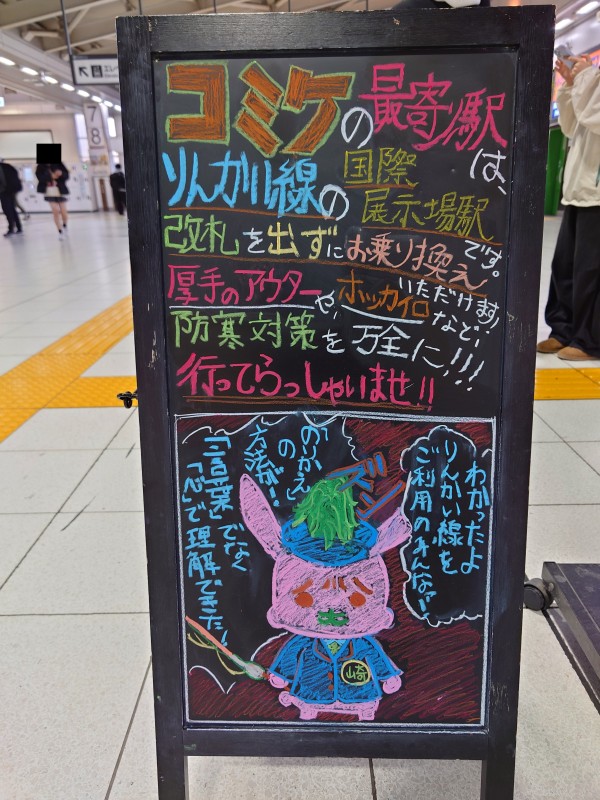 コミケの最寄り駅は、
りんかい線の国際展示場駅です。
改札を出ずにお乗り換えいただけます!
厚手のアウターや、ホッカイロなど、
防寒対策を万全に!!!
行ってらっしゃいませ!!
わかったよ
りんかい線を
ご利用のみんなァ!
ズン
「のりかえ」
の
方法が!
「言葉」でなく
「心」で理解できた!
山崎
7
8